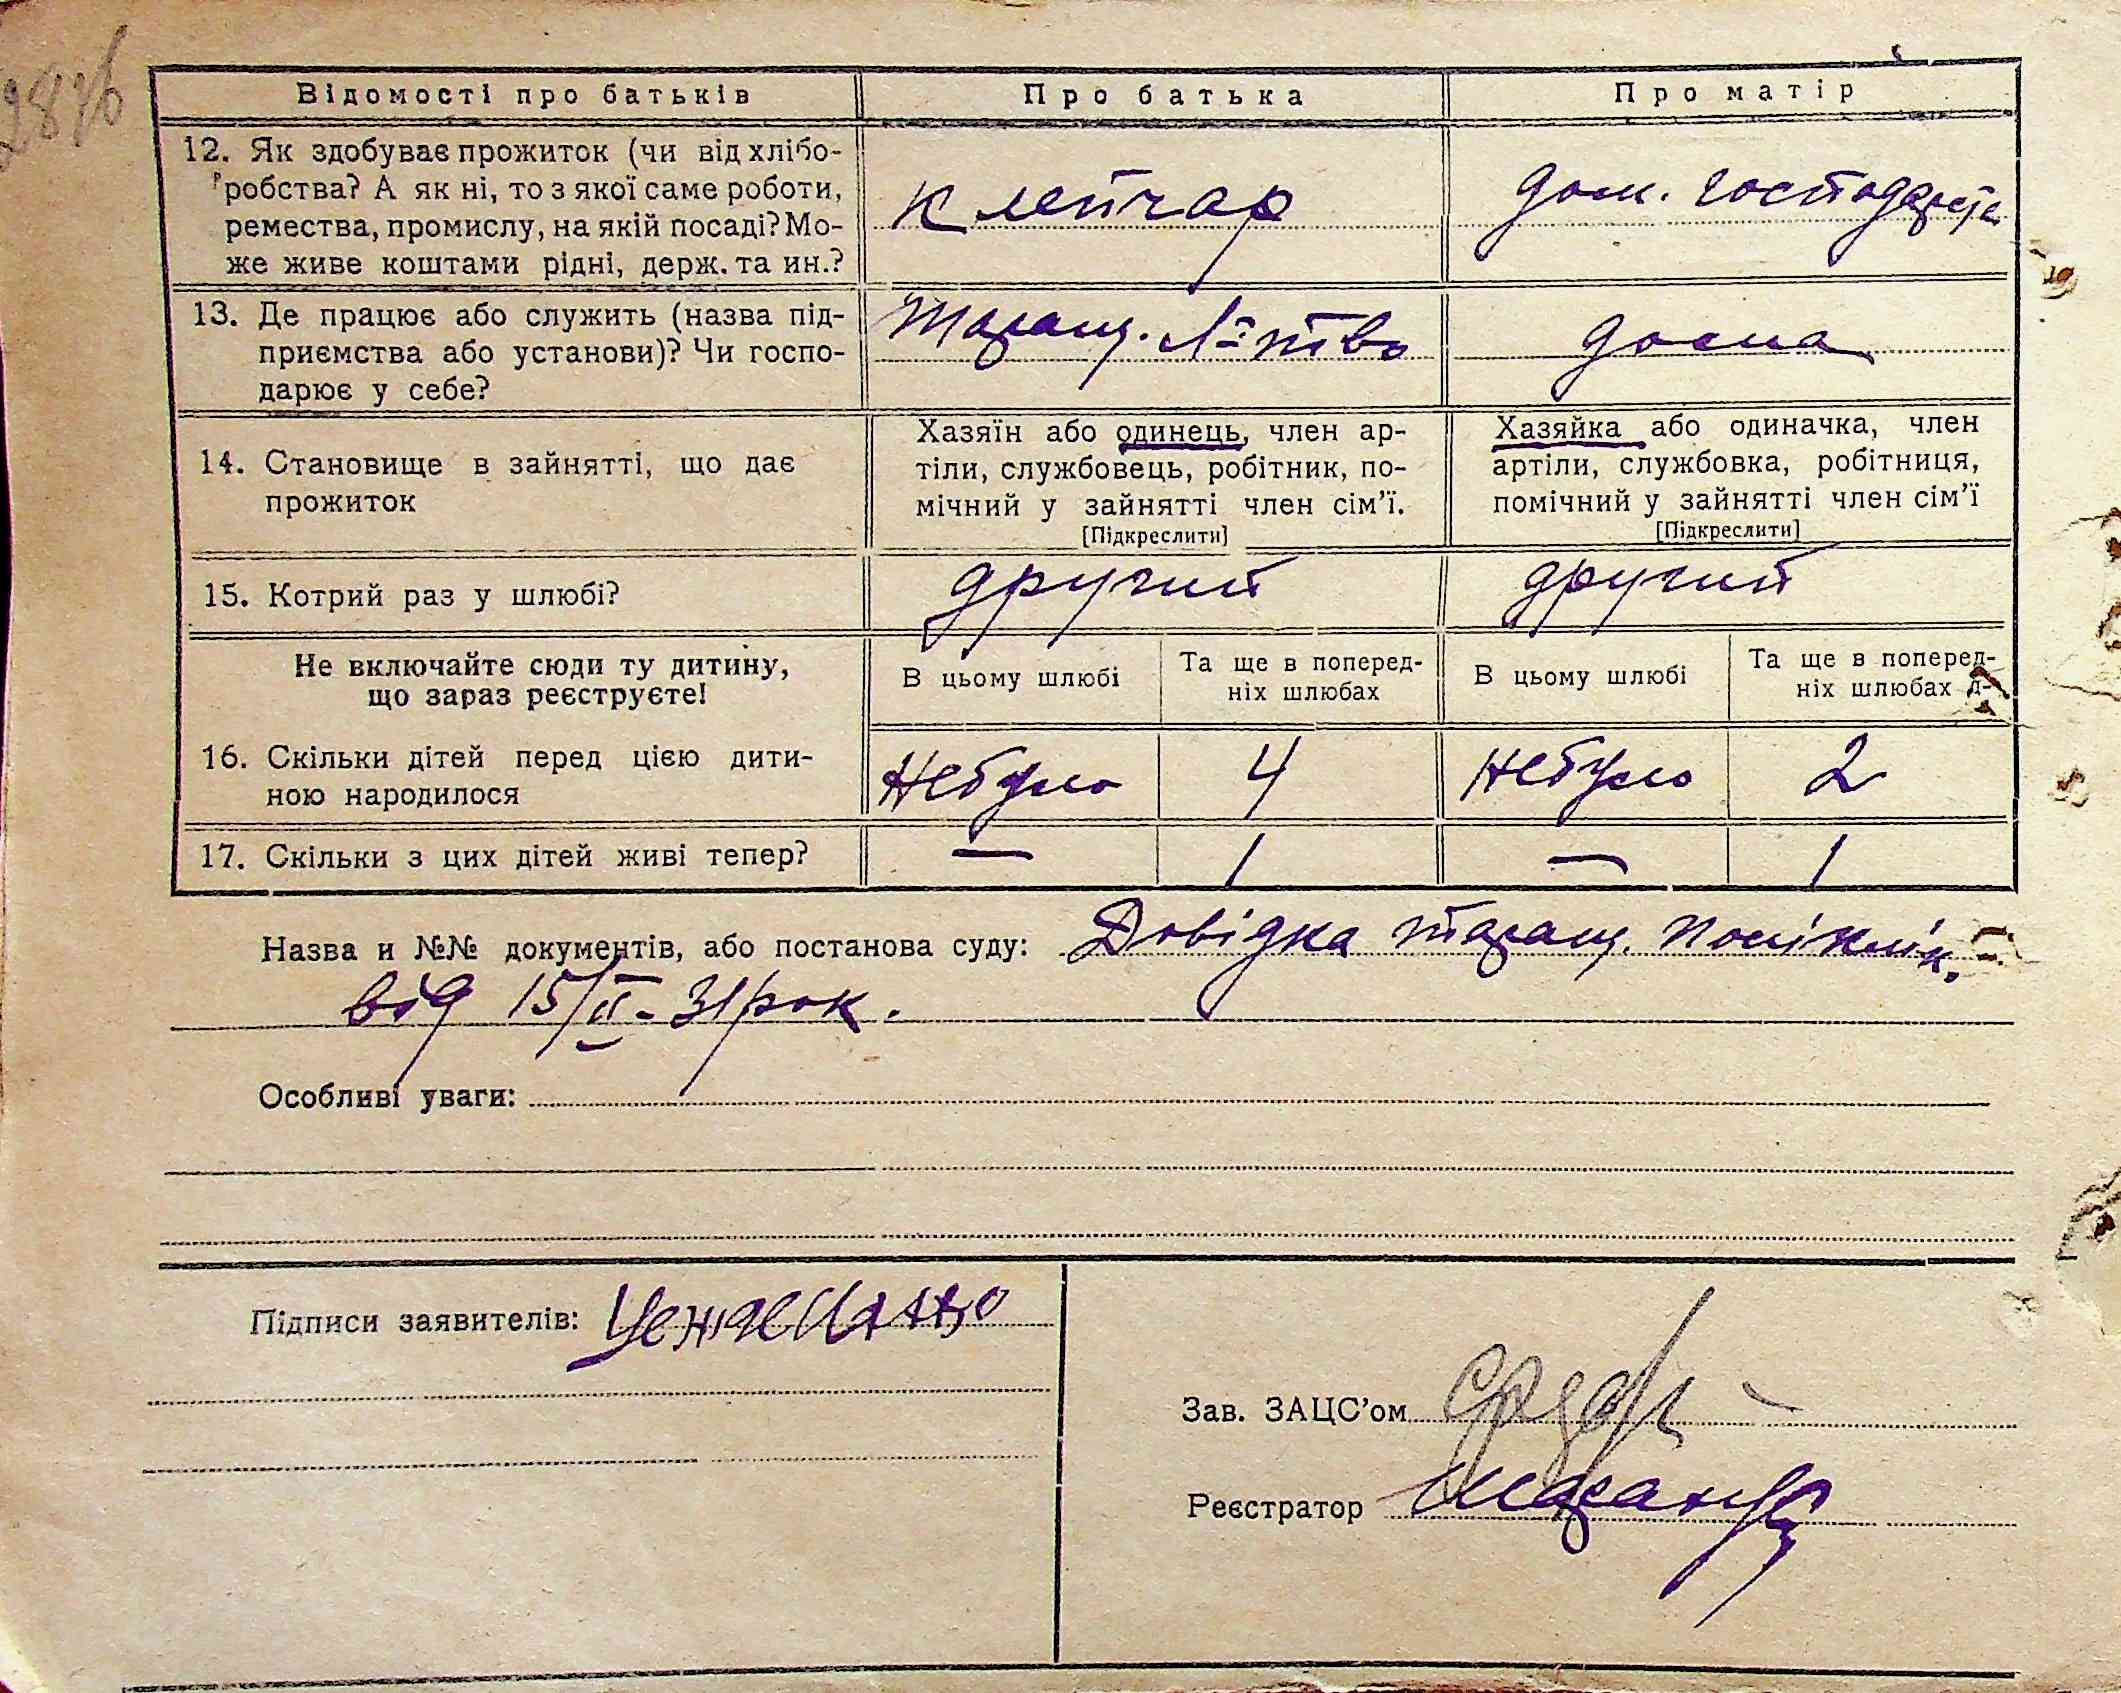 Відомості про батьків
Про батька
Про матір
12. Як здобуває прожиток (чи від хлібо-
робства? А як ні, то з якої саме роботи,
ремества, промислу, на якій посаді? Мо-
же живе коштами рідні, держ. та ин.?
дом.
13. Де працює або служить (назва під-
приємства або установи)? Чи госпо-
дарює у себе?
Таращ.
дома
14. Становище в зайнятті, що дає
прожиток
Хазяїн або одинець, член ар-
тіли, службовець, робітник, по-
мічний у зайнятті член сім’ї.
[Підкреслити]
Хазяйка або одиначка, член
артіли, службовка, робітниця,
помічний у зайнятті член сім’ї
[Підкреслити]
15. Котрий раз у шлюбі?
другий
другий
Не включайте сюди ту дитину,
що зараз реєструєте!
В цьому шлюбі
Та ще в поперед-
ніх шлюбах
В цьому шлюбі
Та ще в поперед-
ніх шлюбах
16. Скільки дітей перед цією дити-
ною народилося
Небуло
4
Небуло
2
17. Скільки з цих дітей живі тепер?
—
1
—
1
Назва и №№ документів, або постанова суду: Довідка Таращ. Поліклінік.
від 15/II-31 рок.
Особливі уваги:
Підписи заявителів:
Зав. ЗАЦС’ом
Реєстратор